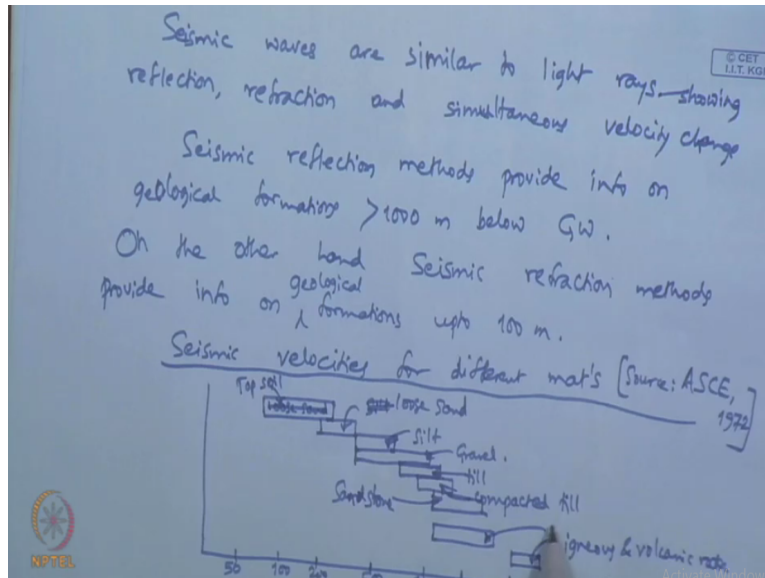 Seismic waves are similar to light rays showing
© CET
I.I.T. KGP
reflection, refraction and simultaneous velocity change
Seismic reflection methods provide info on
geological formations >1000 m below GW.
On the other hand Seismic refraction methods
provide info on geological formations upto 100 m.
Seismic velocities for different mat's [Source: ASCE,
1972]
Top soil
loose sand
loose sand
Silt
Gravel.
till
Sandstone
compacted till
igneous & volcanic rocks
50 100 200
NPTEL